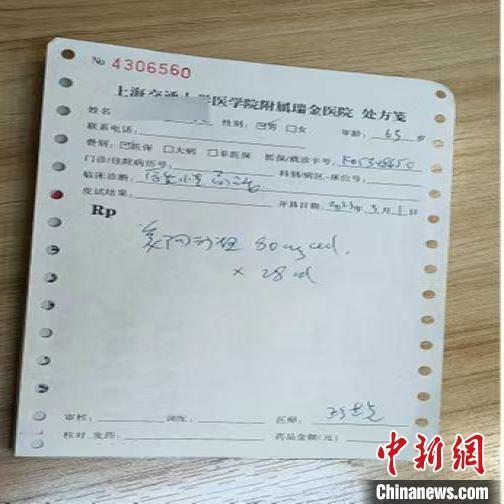 No 4306560
上海交通大学医学院附属瑞金医院 处方笺
姓名 性别：☑男 □女 年龄： 63 岁
联系电话：
费别：☑医保 □大病 □非医保 医保/就诊卡号：
门诊/住院病历号： 科别/病区-床位号：
临床诊断：
皮试结果： 开具日期：2023年5月1日
Rp
80mg qd.
× 28d
审核： 调配： 医师：
核对、发药： 药品金额(元)：
中新网
Chinanews.com